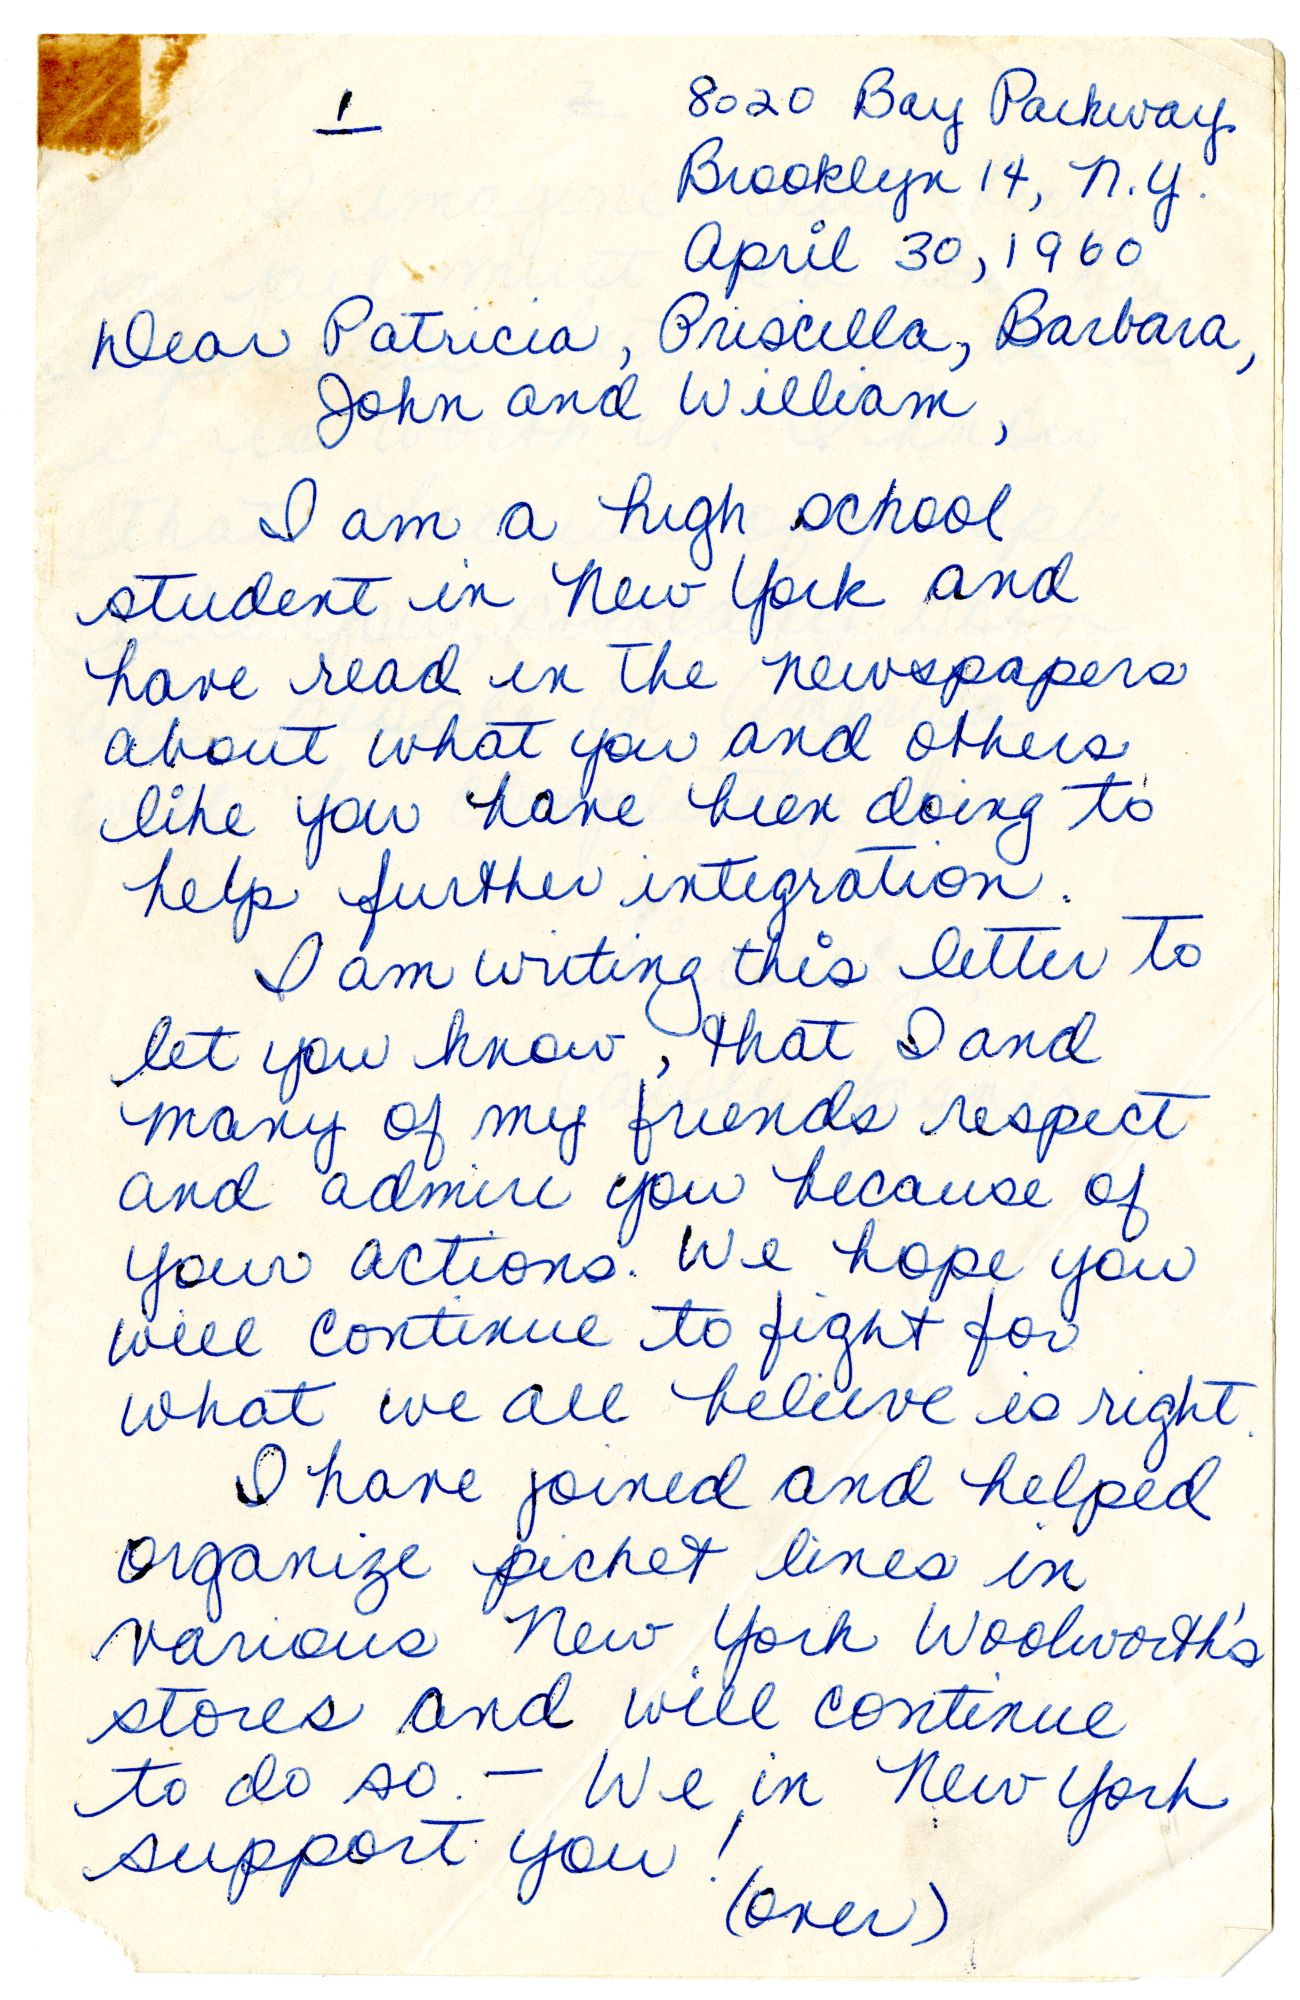 1
8020 Bay Parkway
Brooklyn 14, N.Y.
April 30, 1960
Dear Patricia, Priscilla, Barbara,
John and William,
I am a high school
student in New York and
have read in the newspapers
about what you and others
like you have been doing to
help further integration.
I am writing this letter to
let you know, that I and
many of my friends respect
and admire you because of
your actions. We hope you
will continue to fight for
what we all believe is right.
I have joined and helped
organize picket lines in
various New York Woolworth's
stores and will continue
to do so. – We in New York
support you!
(over)